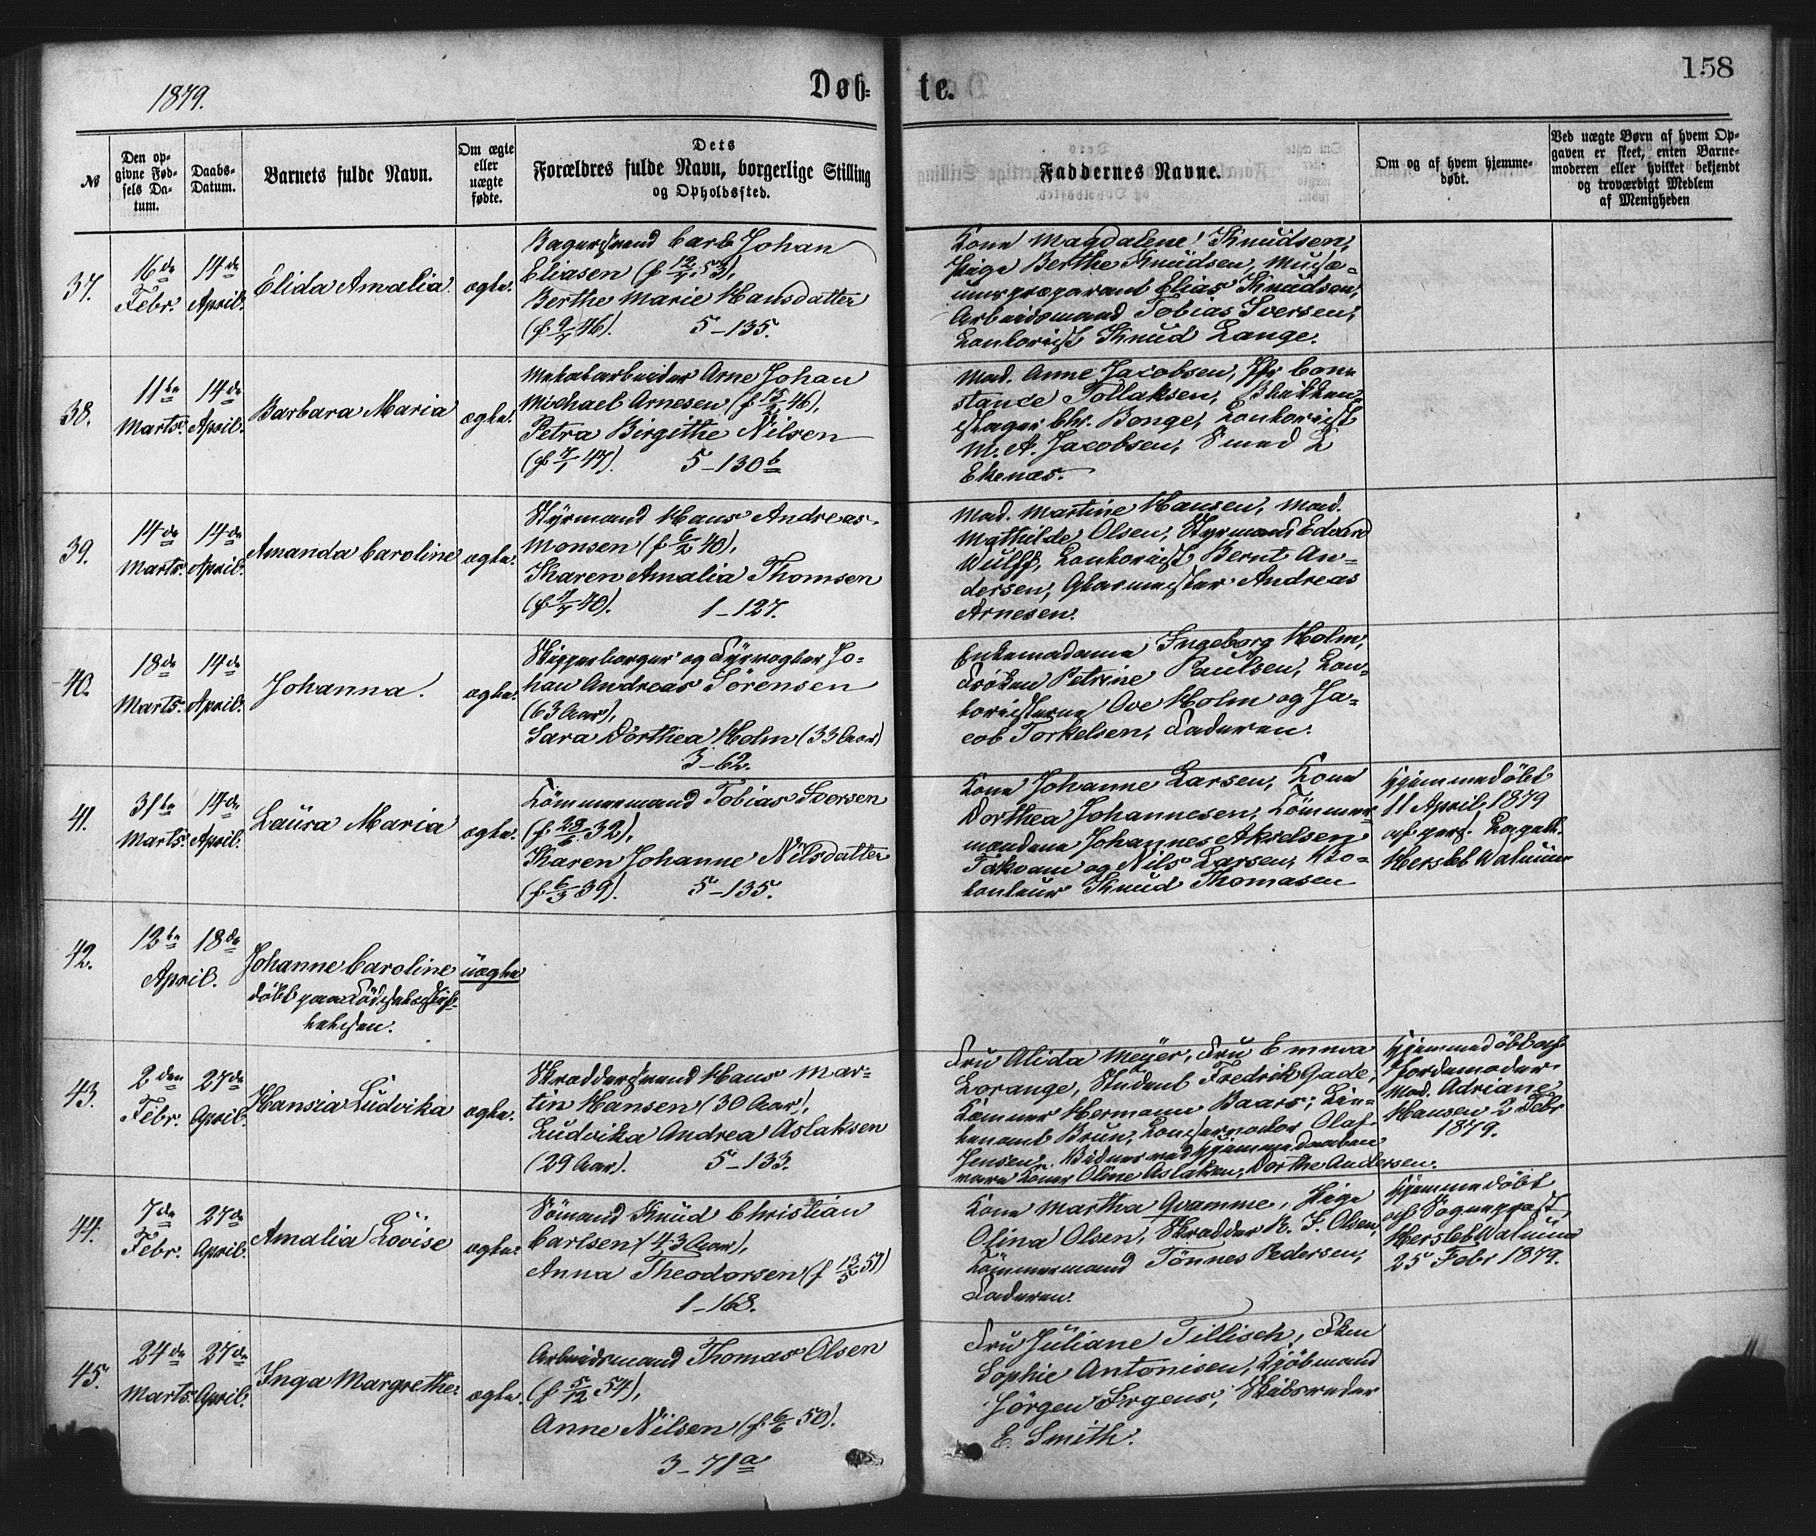 1879.
Døb-
te.
158
No
Den op-
givne Fød-
sels Da-
tum.
Daabs-
Datum.
Barnets fulde Navn.
Om ægte
eller
uægte
fødte.
Dets
Forældres fulde Navn, borgerlige Stilling
og Opholdssted.
Faddernes Navne.
Om og af hvem hjemme-
døbt.
Ved uægte Børn af hvem Op-
gaven er skeet, enten Barne-
moderen eller hvilket bekjendt
og troværdigt Medlem
af Menigheden
37.
16de
Febr.
14de
April.
Elida Amalia.
ægte.
Bagersvend Carl Johan
Eliasen (f 12/7 53),
Berthe Marie Hansdatter
(f 9/7 46). 5-135.
Kone Magdalene Knudsen,
Pige Berthe Knudsen, Musæ-
umspræparant Elias Knudsen,
Arbeidsmand Tobias Iversen,
Kontorist Knud Lange.
38.
11te
Marts.
14de
April.
Barbara Maria
ægte.
Metalarbeider Arne Johan
Michael Arnesen (f 15/2 46),
Petra Birgithe Nilsen
(f 7/1 47). 5-130b
Mad. Anne Jacobsen, Jfr Con-
stance Tollaksen, Blikken-
slager Chr. Bonge, Kontorist
M. A. Jacobsen, Smed L
Ekenæs.
39.
14de
Marts.
14de
April.
Amanda Caroline
ægte.
Styrmand Hans Andreas
Monsen (f 6/2 40),
Karen Amalia Thomsen
(f 7/7 40). 1-127.
Mad. Martine Hansen, Mad.
Mathilde Olsen, Styrmand Edvard
Wulff, Kontorist Bernt An-
dersen, Glasmester Andreas
Arnesen.
40.
18de
Marts.
14de
April.
Johanna.
ægte.
Skipperborger og Fyrvogter Jo-
han Andreas Sørensen
(63 Aar),
Sara Dorthea Holm (33 Aar)
3-62.
Enkemadame Ingeborg Holm,
Frøken Petrine Paulsen, Kon-
toristerne Ove Holm og Ja-
cob Torkelsen, Faderen.
41.
31te
Marts.
14de
April.
Laura Maria
ægte.
Tømmermand Tobias Iversen
(f 28/6 32),
Karen Johanne Nilsdatter
(f 6/3 39). 5-135.
Kone Johanne Larsen, Kone
Dorthea Johannesen, Tømmer-
mændene Johannes Akselsen
og Nils Larsen,
Knud Thomasen
Hjemmedøbt
11 April 1879
af pers. Kapell.
Hersleb Walnum
42.
12te
18de
April.
Johanne Caroline
døbt paa Fødselsstif-
telsen.
uægte
43.
2den
Febr.
27de
April.
Hansia Ludvika
ægte.
Skræddersvend Hans Mar-
tin Hansen (30 Aar),
Ludvika Andrea Aslaksen
(29 Aar). 5-133.
Fru Alida Meyer, Fru Emma
Lorange, Student Fredrik Gade,
Kæmner Hermann Baars, Lieu-
tenant Brun, Konservator Olaf
Jensen. Vidner ved Hjemmedaaben
vare Koner Oline Aslaksen, Dorthe Andersen.
Hjemmedøbt af
Jordemoder
Mad. Adriane
Hansen 2 Febr
1879.
44.
7de
Febr.
27de
April.
Amalia Lovise
ægte.
Sømand Knud Christian
Carlsen (43 Aar),
Anna Theodorsen (f 13/5 51)
1-168.
Kone Martha Qvamme, Pige
Olina Olsen, Skrædder R. F. Olsen,
Tømmermand Tønnes Pedersen,
Faderen.
Hjemmedøbt
af Sogneprest
Hersleb Walnum
25 Febr 1879.
45.
24de
Marts.
27de
April.
Inga Margrethe.
ægte.
Arbeidsmand Thomas Olsen
(f 5/12 54),
Anne Nilsen (f 6/6 50).
3-71a
Fru Juliane Tillisch, Frøken
Sophie Antonisen, Kjøbmand
Jørgen Irgens, Skibsreder
E. Smith.